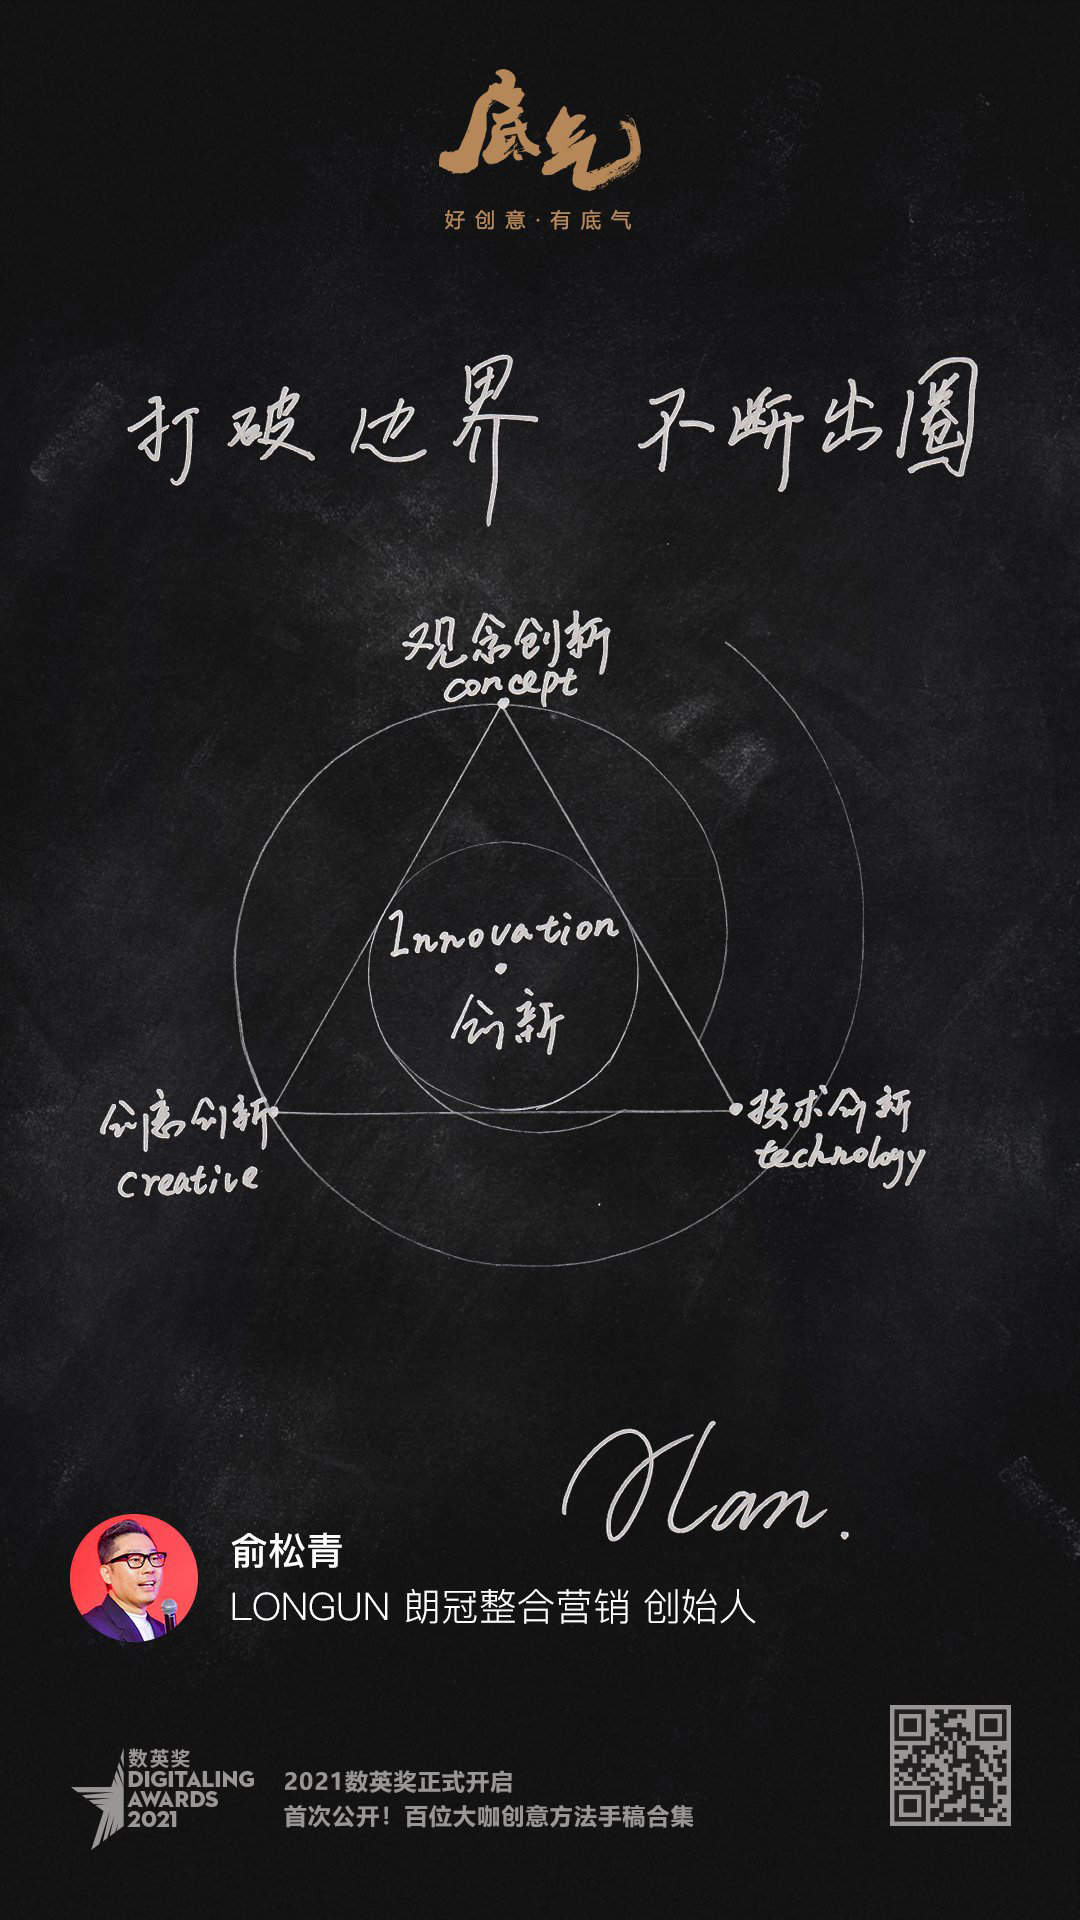 底气
好创意·有底气
打破边界 不断出圈
观念创新
concept
Innovation
创新
创意创新
creative
技术创新
technology
Alan.
俞松青
LONGUN 朗冠整合营销 创始人
数英奖
DIGITALING
AWARDS
2021
2021数英奖正式开启
首次公开！百位大咖创意方法手稿合集